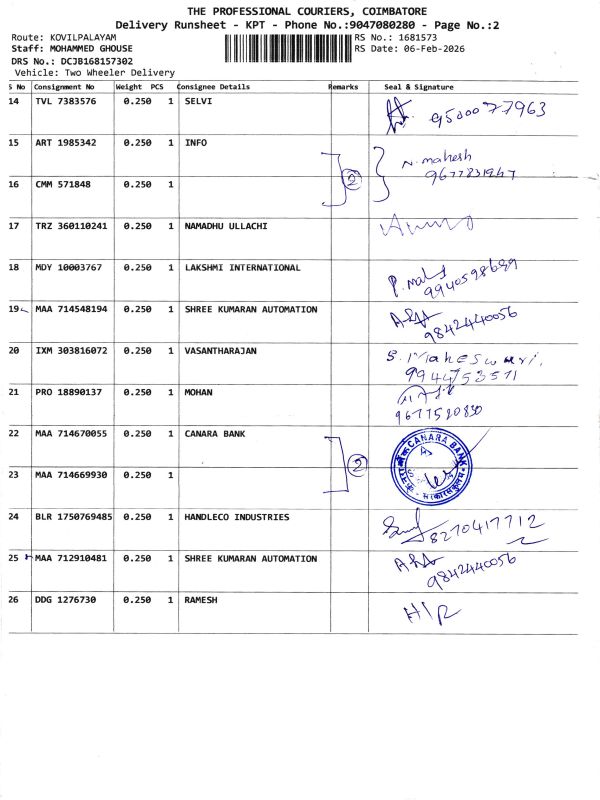 THE PROFESSIONAL COURIERS, COIMBATORE
Delivery Runsheet - KPT - Phone No.:9047080280 - Page No.:2
Route: KOVILPALAYAM
RS No.: 1681573
Staff: MOHAMMED GHOUSE
RS Date: 06-Feb-2026
DRS No.: DCJB168157302
Vehicle: Two Wheeler Delivery
S No Consignment No Weight PCS Consignee Details Remarks Seal & Signature
14 TVL 7383576 0.250 1 SELVI 9500077963
15 ART 1985342 0.250 1 INFO N. mahesh
2 9677831947
16 CMM 571848 0.250 1
17 TRZ 360110241 0.250 1 NAMADHU ULLACHI
18 MDY 10003767 0.250 1 LAKSHMI INTERNATIONAL
9940598689
19 MAA 714548194 0.250 1 SHREE KUMARAN AUTOMATION
9842440056
20 IXM 303816072 0.250 1 VASANTHARAJAN S. Maheswari.
9944753571
21 PRO 18890137 0.250 1 MOHAN
9677520830
22 MAA 714670055 0.250 1 CANARA BANK CANARA BANK
2
23 MAA 714669930 0.250 1
24 BLR 1750769485 0.250 1 HANDLECO INDUSTRIES 8270417712
25 MAA 712910481 0.250 1 SHREE KUMARAN AUTOMATION
9842440056
26 DDG 1276730 0.250 1 RAMESH